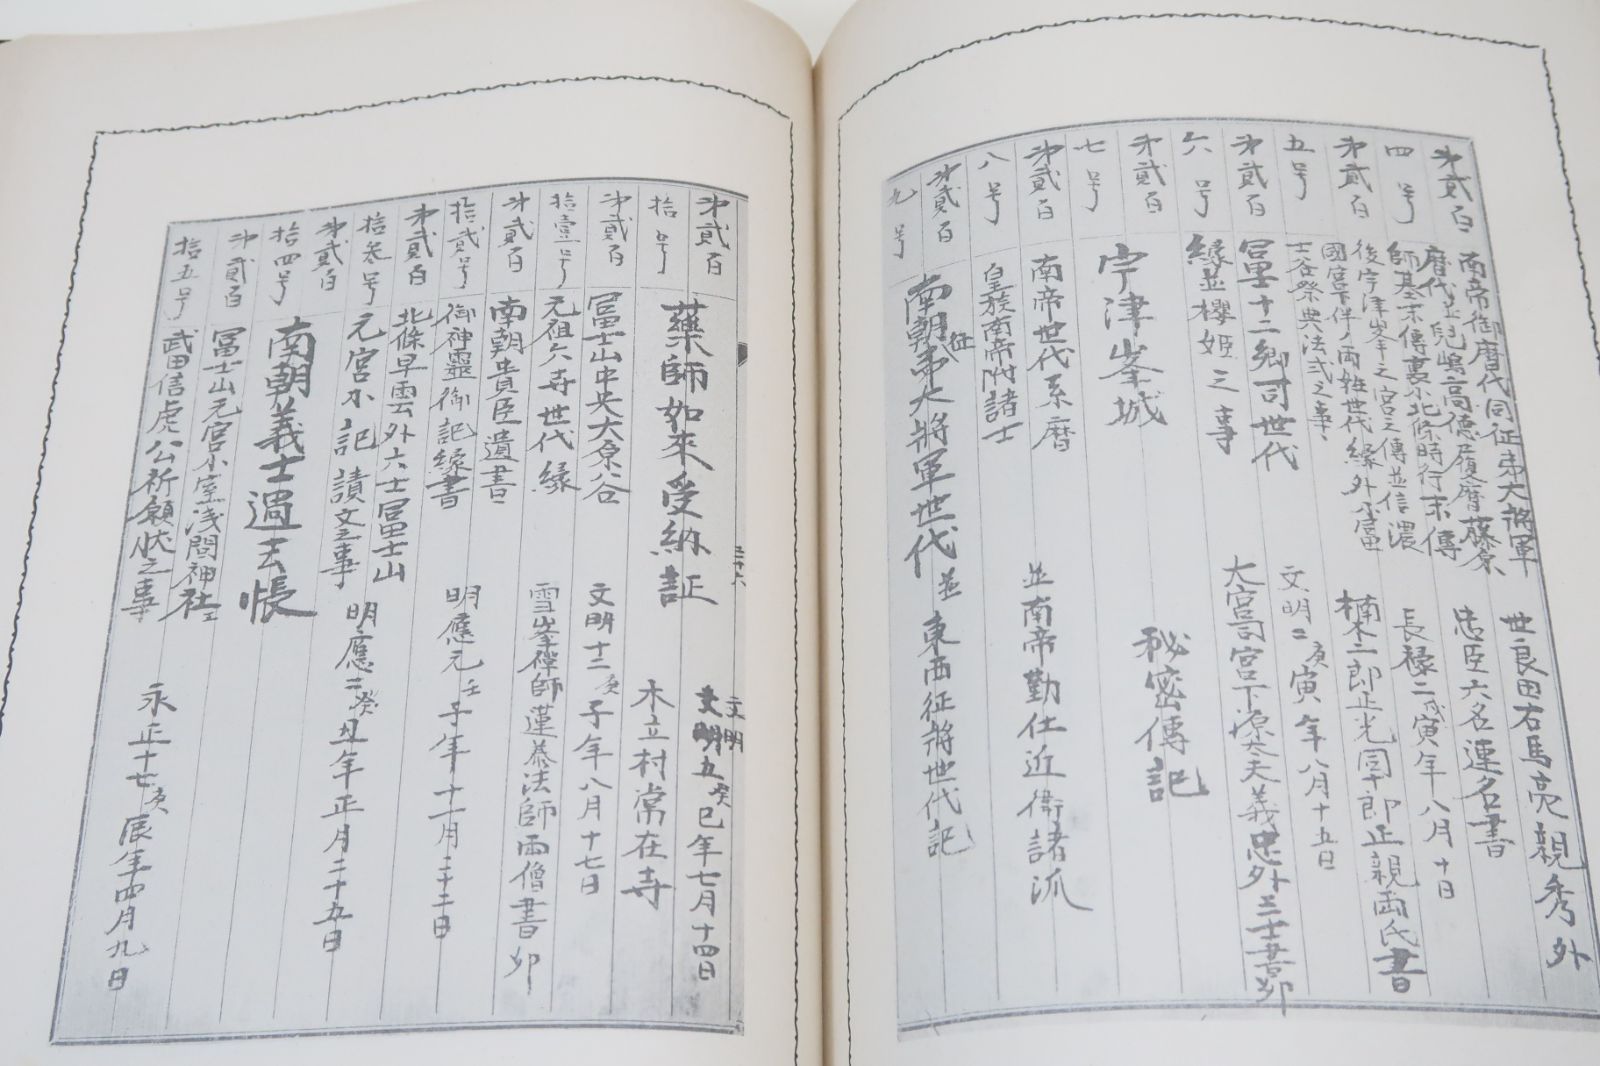 第貳百
四号
南帝御暦代同征夷大将軍
暦代並児嶋高徳履暦藤原
師基末傳裏不北條時行末傳
世良田右馬亮親秀外
忠臣六名連名書
長禄二戊寅年八月十日
第貳百
五号
後宇津峯之宮之傳並信濃
國宮下伴ノ両姓世代縁外不冨
士谷祭典法式之事
楠木二郎正光同十郎正親両氏書
文明二庚寅年八月十五日
第貳百
六号
冨士十二郷司世代
縁並櫻姫之事
大宮司宮下源太夫義忠外三士書卯
第貳百
七号
宇津峯城
秘密傳記
第貳百
八号
南帝世代系暦
皇族南帝附諸士
並南帝勤仕近衛諸流
第貳百
九号
南朝征夷大将軍世代
並東西征将世代記
第貳百
拾号
藥師如來受納証
文明
文明五癸巳年七月十四日
木立村常在寺
第貳百
拾壹号
冨士山中央大原谷
元祖六寺世代縁
文明十二庚子年八月十七日
雪峯禅師蓮恭法師両僧書卯
第貳百
拾貳号
南朝貴臣遺書
御神靈御記縁書
明應元壬子年十一月二十二日
第貳百
拾叁号
北條早雲外六士冨士山
元宮不記讀文之事
明應二癸丑年正月二十五日
第貳百
拾四号
南朝義士過去帳
第貳百
拾五号
冨士山元宮小室浅間神社
武田信虎公祈願状之事
永正十七庚辰年四月九日